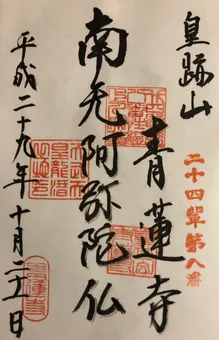 皇跡山
二十四輩第八番
青蓮寺
南无阿弥陀仏
平成二十九年十月二五日